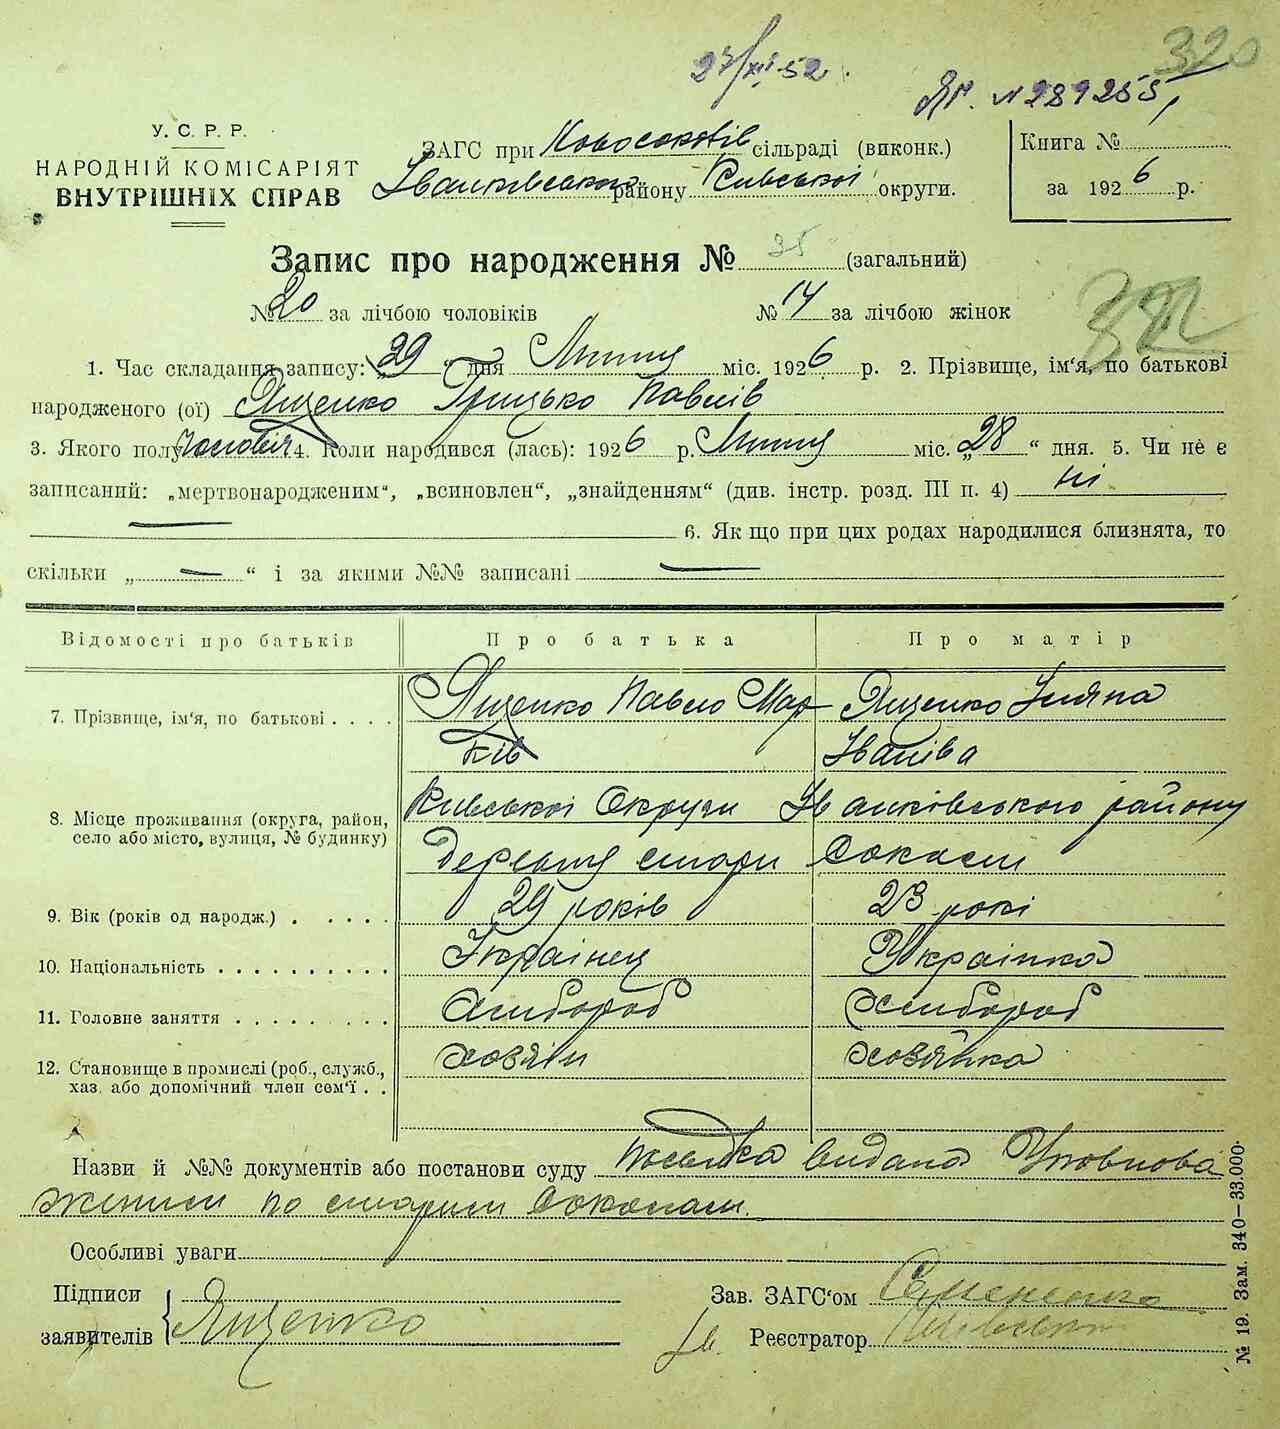 320
27/XII 52.
Яг. №289255,
У. С. Р. Р.
НАРОДНІЙ КОМІСАРІЯТ
ВНУТРІШНІХ СПРАВ
ЗАГС при сільраді (виконк.)
Іванківського району Київської округи.
Книга №
за 1926 р.
Запис про народження № 35 (загальний)
№ 20 за лічбою чоловіків № 14 за лічбою жінок
322
1. Час складання запису: „29“ дня Липця міс. 1926 р. 2. Прізвище, ім‘я, по батькові
народженого (ої) Ященко Грицько Павлів
3. Якого полу чоловіч 4. Коли народився (лась): 1926 р. Липця міс. „28“ дня. 5. Чи не є
записаний: „мертвонародженим“, „всиновлен“, „знайденням“ (див. інстр. розд. III п. 4) ні
— 6. Як що при цих родах народилися близнята, то
скільки „—“ і за якими №№ записані —
Відомості про батьків Про батька Про матір
7. Прізвище, ім‘я, по батькові . . . . Ященко Павло Мар Ященко Уляна
ків Іванівa
8. Місце проживання (округа, район, село або місто, вулиця, № будинку) Київської Округи Іванківського району
деревня стари Соколи
9. Вік (років од народж.) . . . . . 29 років 23 рокі
10. Національність . . . . . . . . . . Українец Українка
11. Головне заняття . . . . . . . . Хлибороб Хлибороб
12. Становище в промислі (роб., служб., хазяін хозяйка
хаз. або допомічний член сем‘ї . .
Назви й №№ документів або постанови суду посьлка видана Уповнова
женим по старим Соколам.
Особливі уваги
Підписи
заявителів Ященко
Зав. ЗАГС‘ом Семененко
Реєстратор
№ 19. Зам. 340—33.000.